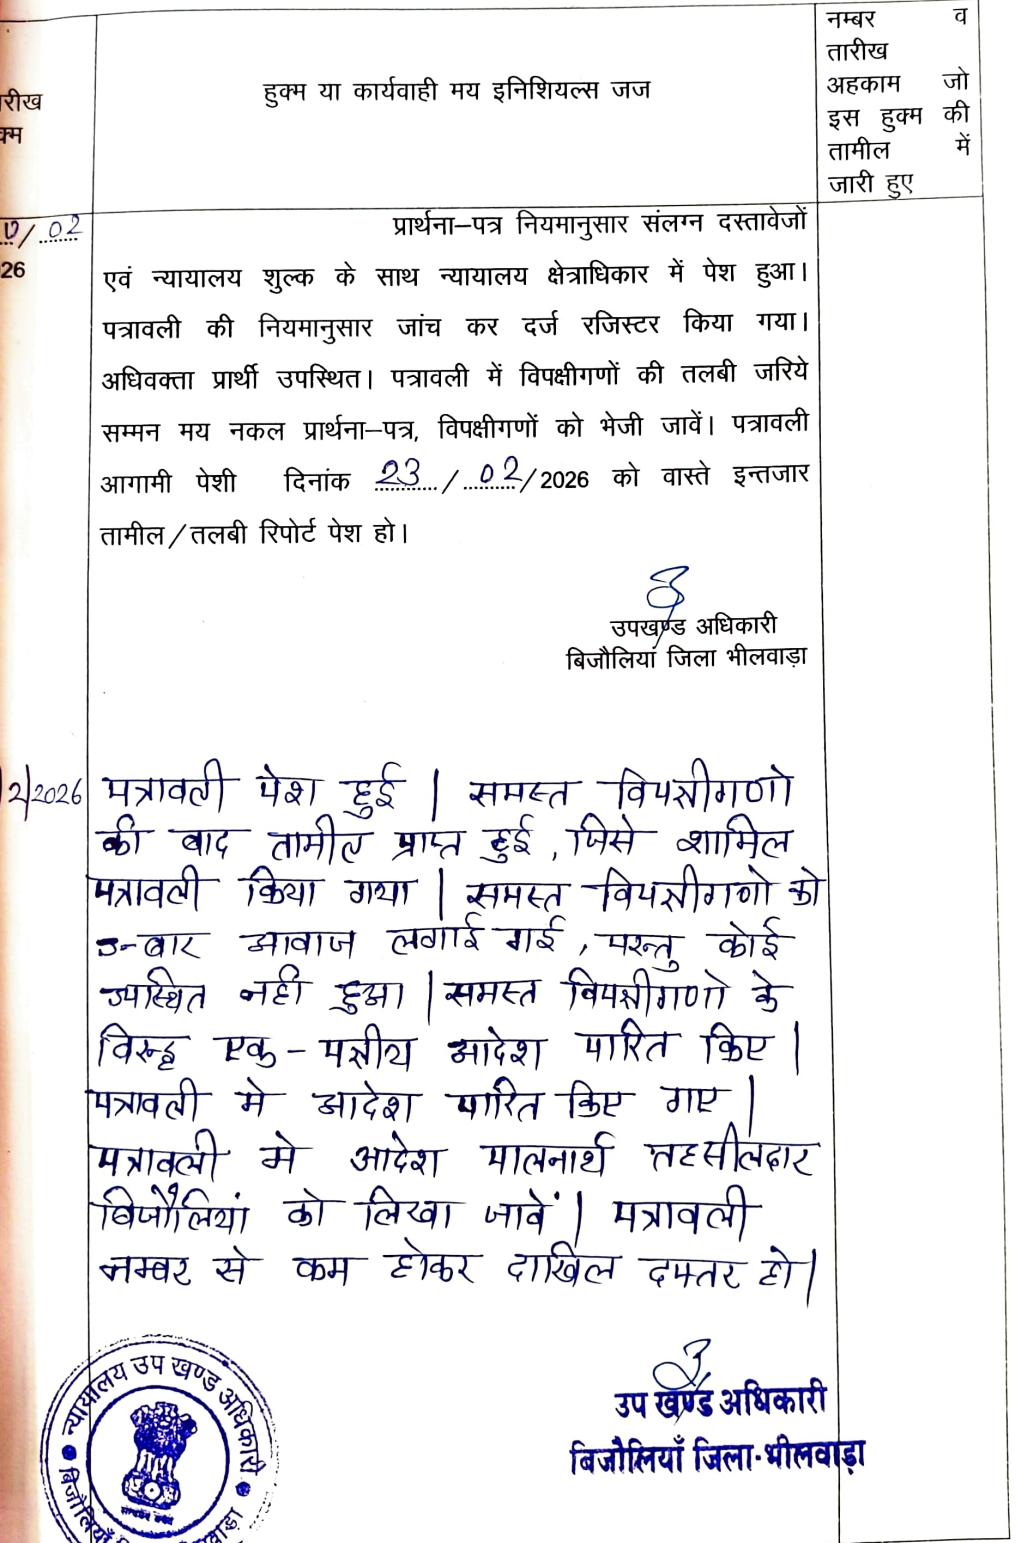 रीख
क्म
हुक्म या कार्यवाही मय इनिशियल्स जज
नम्बर व
तारीख
अहकाम जो
इस हुक्म की
तामील में
जारी हुए
/ 02
26
प्रार्थना–पत्र नियमानुसार संलग्न दस्तावेजों
एवं न्यायालय शुल्क के साथ न्यायालय क्षेत्राधिकार में पेश हुआ।
पत्रावली की नियमानुसार जांच कर दर्ज रजिस्टर किया गया।
अधिवक्ता प्रार्थी उपस्थित। पत्रावली में विपक्षीगणों की तलबी जरिये
सम्मन मय नकल प्रार्थना–पत्र, विपक्षीगणों को भेजी जावें। पत्रावली
आगामी पेशी दिनांक 23 / 02/2026 को वास्ते इन्तजार
तामील/तलबी रिपोर्ट पेश हो।
उपखण्ड अधिकारी
बिजौलियां जिला भीलवाड़ा
2/2026
पत्रावली पेश हुई | समस्त विपक्षीगणो
की बाद तामील प्राप्त हुई, जिसे शामिल
पत्रावली किया गया | समस्त विपक्षीगणो को
3-बार आवाज लगाई गई, परन्तु कोई
उपस्थित नही हुआ | समस्त विपक्षीगणो के
विरुद्ध एक-पक्षीय आदेश पारित किए |
पत्रावली मे आदेश पारित किए गए |
पत्रावली मे आदेश पालनार्थ तहसीलदार
बिजौलियां को लिखा जावें | पत्रावली
नम्बर से कम होकर दाखिल दफ्तर हो |
उप खण्ड अधिकारी
बिजौलियाँ जिला-भीलवाड़ा
न्यायालय उप खण्ड अधिकारी
बिजौलियाँ